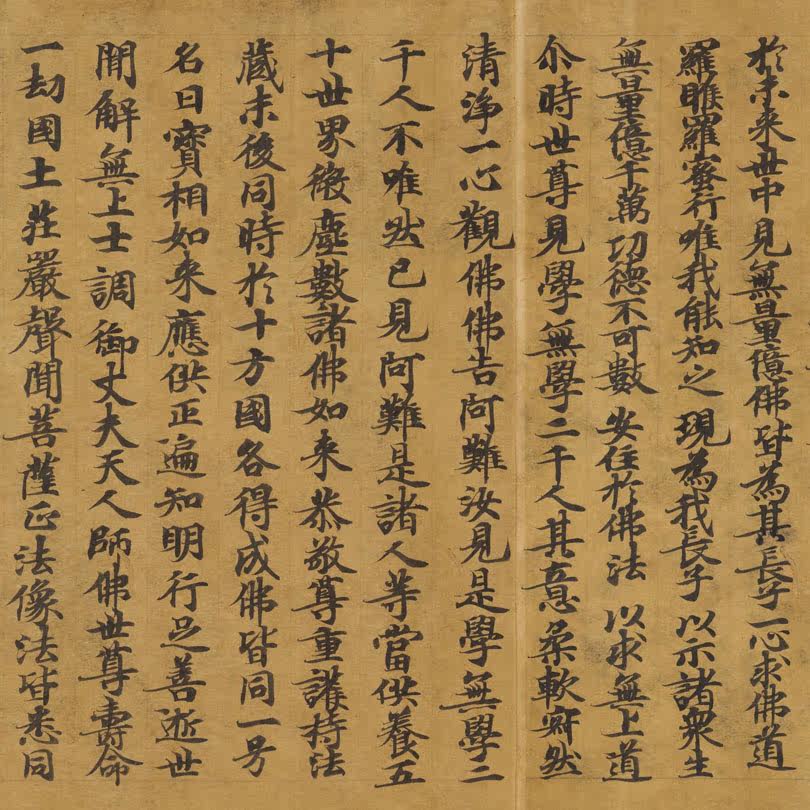 於未来世中見無量億佛皆為其長子一心求佛道
羅睺羅密行唯我能知之現為我長子以示諸衆生
無量億千萬功德不可數安住於佛法以求無上道
尒時世尊見學無學二千人其意柔軟寂然
清淨一心觀佛佛告阿難汝見是學無學二
千人不唯然已見阿難是諸人等當供養五
十世界微塵數諸佛如来恭敬尊重護持法
藏末後同時於十方國各得成佛皆同一号
名曰寶相如来應供正遍知明行足善逝世
間解無上士調御丈夫天人師佛世尊壽命
一劫國土莊嚴聲聞菩薩正法像法皆悉同